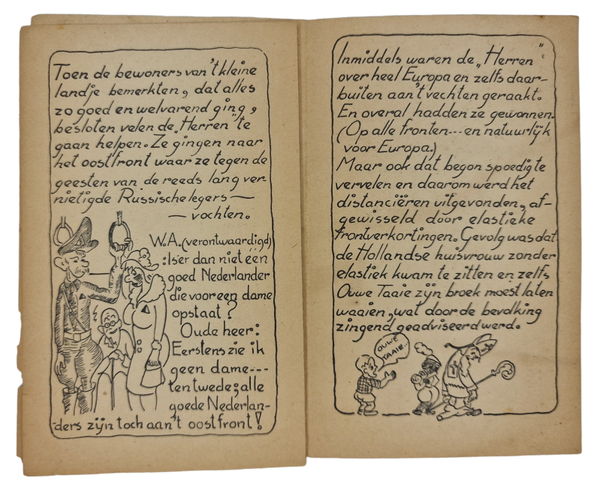 Toen de bewoners van 't kleine
landje bemerkten, dat alles
zo goed en welvarend ging,
besloten velen de „Herren" te
gaan helpen. Ze gingen naar
het oostfront waar ze tegen de
geesten van de reeds lang ver-
nietigde Russische legers —
— vochten.
W.A. (verontwaardigd)
: Is er dan niet één
goed Nederlander
die voor een dame
opstaat?
Oude heer:
Eerstens zie ik
geen dame----
ten twede; alle
goede Nederlan-
ders zijn toch aan't oostfront!
Inmiddels waren de „Herren"
over heel Europa en zelfs daar-
buiten aan't vechten geraakt.
En overal hadden ze gewonnen.
(Op alle fronten --- en natuurlijk
voor Europa.)
Maar ook dat begon spoedig te
vervelen en daarom werd het
distanciëren uitgevonden, af-
gewisseld door elastieke
frontverkortingen. Gevolg was dat
de Hollandse huisvrouw zonder
elastiek kwam te zitten en zelfs
Ouwe Taaie zijn broek moest laten
waaien, wat door de bevolking
zingend geadviseerd werd.
OUWE
TAAIE